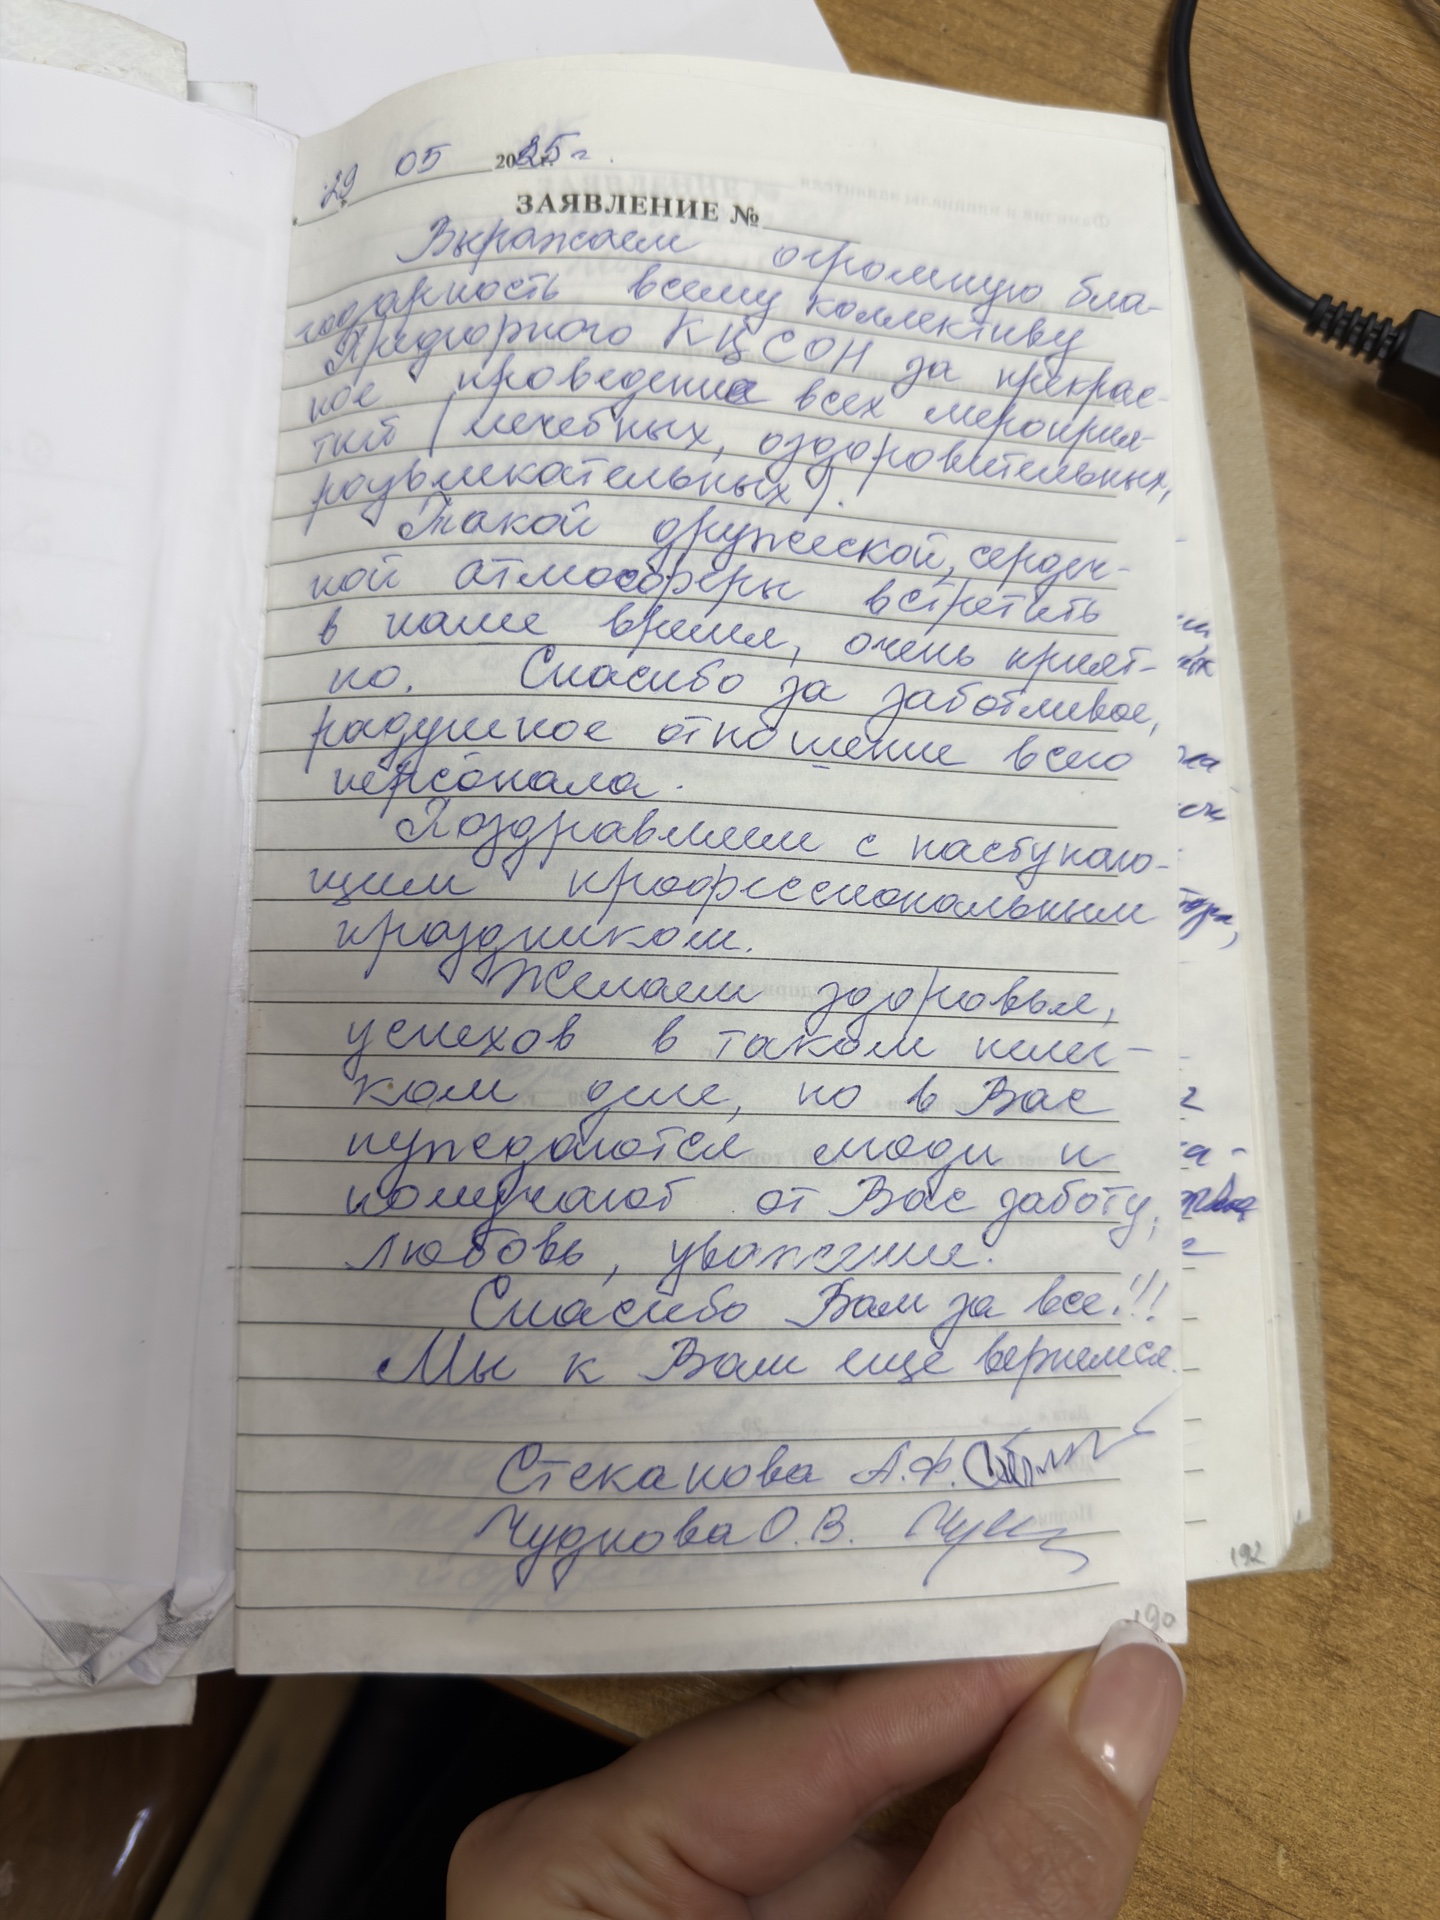 29 05 2025 г.
ЗАЯВЛЕНИЕ №
Выражаем огромную бла-
годарность всему коллективу
Предгорного КЦСОН за прекрас-
ное проведение всех мероприя-
тий (лечебных, оздоровительных,
развлекательных).
Такой дружеской, сердеч-
ной атмосферы встретить
в наше время, очень прият-
но. Спасибо за заботливое,
радушное отношение всего
персонала.
Поздравляем с наступаю-
щим профессиональным
праздником.
Желаем здоровья,
успехов в таком нелег-
ком деле, но в Вас
нуждаются люди и
получают от Вас заботу,
любовь, уважение.
Спасибо Вам за все!!!
Мы к Вам еще вернемся.
Стеканова А.Ф.
Чуднова О.В.
190
192